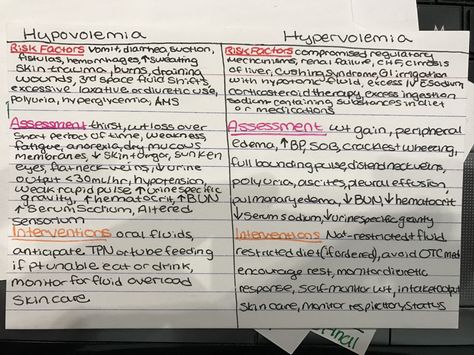 Hypovolemia
Risk Factors vomit, diarrhea, suction,
fistulas, hemorrhages, ↑sweating
skin trauma, burns, draining
wounds, 3rd space fluid shifts,
excessive laxative or diuretic use,
polyuria, hyperglycemia, AMS
Assessment thirst, wt loss over
short period of time, weakness,
fatigue, anorexia, dry mucous
membranes, ↓ skin turgor, sunken
eyes, flat neck veins, ↓ urine
output <30ml/hr, hypotension,
weak rapid pulse, ↑ specific
gravity, ↑ hematocrit, ↑ BUN
↑ Serum Sodium, Altered
sensorium
Interventions oral fluids,
anticipate TPN or tube feeding
if pt unable eat or drink,
monitor for fluid overload
skin care
Hypervolemia
Risk Factors compromised regulatory
mechanisms, renal failure, CHF, cirrosis
of liver, cushing syndrome, GI irrigation
with hypotonic fluid, excess IV ē sodium,
corticosteroid therapy, excess ingestion
sodium containing substances in diet
or medications
Assessment wt gain, peripheral
edema, ↑BP, SOB, crackles + wheezing,
full bounding pulse, distended neck veins,
polyuria, ascites, pleural effusion,
pulmonary edema, ↓BUN, ↓hematocrit
↓Serum sodium, ↓urine specific gravity
Interventions Na+ restricted + fluid
restricted diet (if ordered), avoid OTC med
encourage rest, monitor diuretic
response, self-monitor wt, intake output
skin care, monitor respiratory status